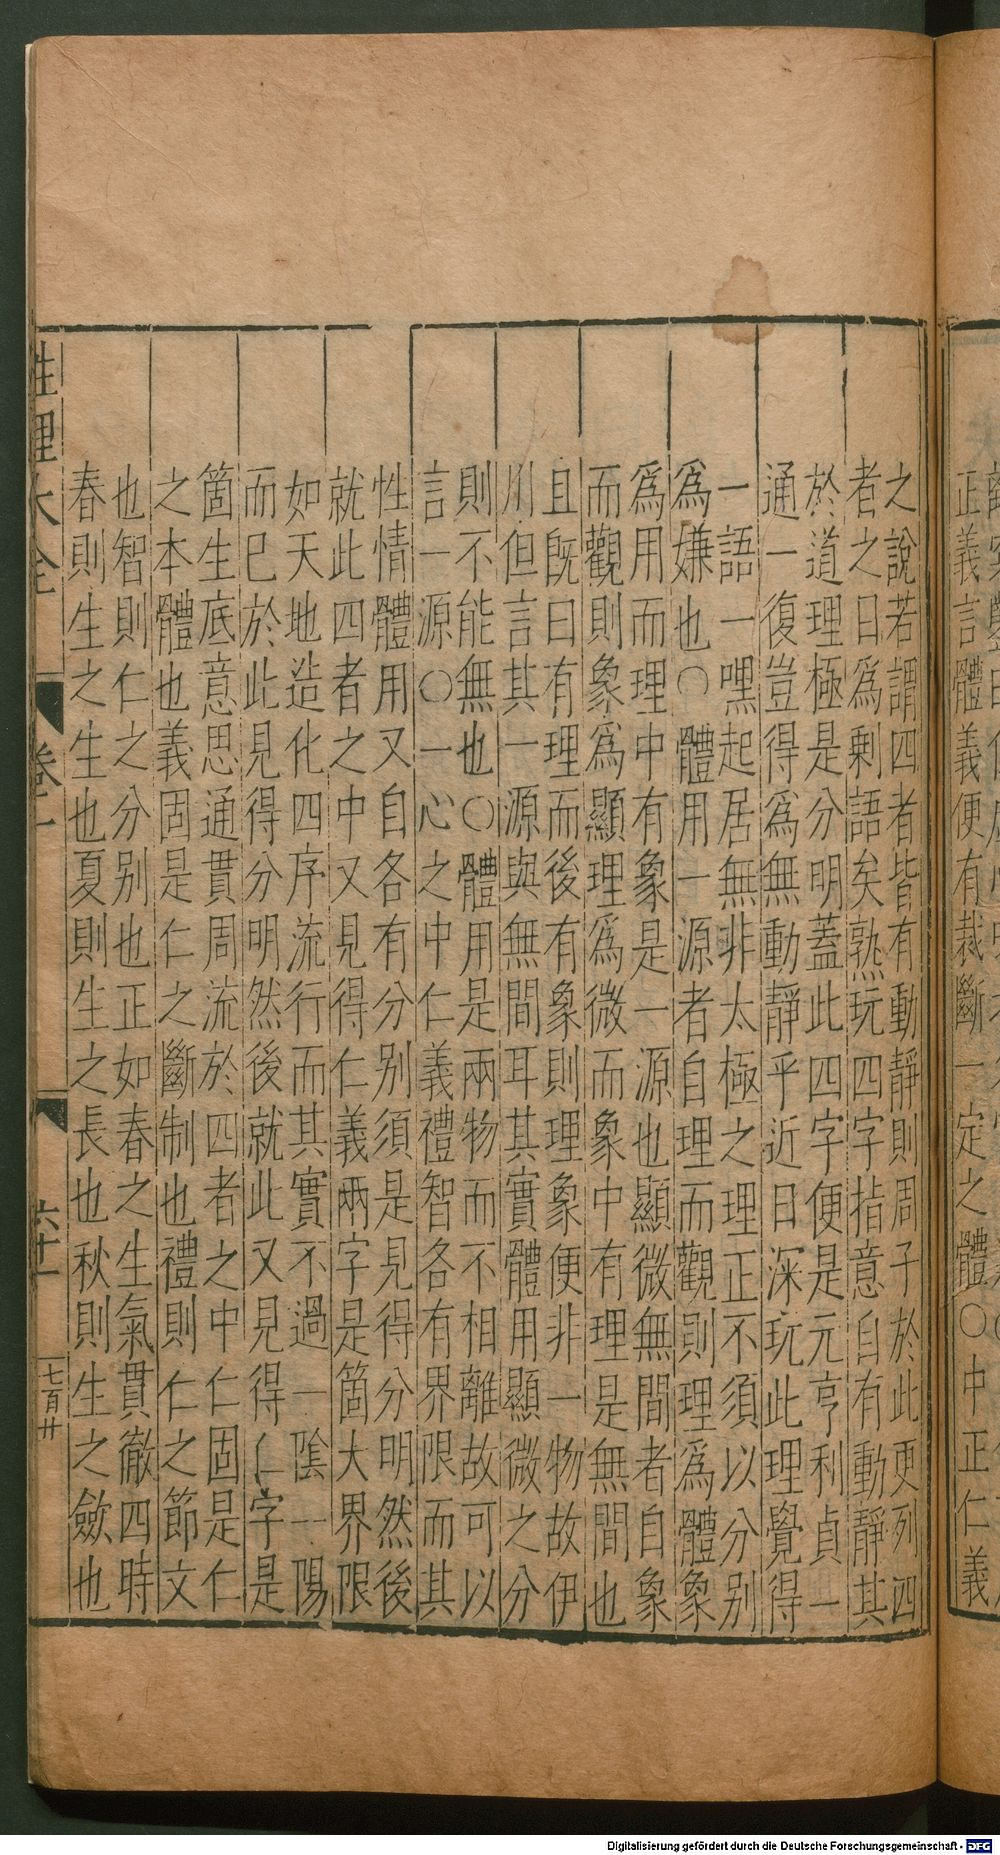 正義言體義便有裁斷一定之體○中正仁義
之說若謂四者皆有動靜則周子於此更列四
者之日爲剰語矣熟玩四字指意自有動靜其
於道理極是分明蓋此四字便是元亨利貞一
通一復豈得爲無動靜乎近日深玩此理覺得
一語一嘿起居無非太極之理正不須以分别
爲嫌也○體用一源者自理而觀則理爲體象
爲用而理中有象是一源也顯微無間者自象
而觀則象爲顯理爲微而象中有理是無間也
且旣曰有理而後有象則理象便非一物故伊
川但言其一源與無間耳其實體用顯微之分
則不能無也○體用是兩物而不相離故可以
言一源○一心之中仁義禮智各有界限而其
性情體用又自各有分别須是見得分明然後
就此四者之中又見得仁義兩字是箇大界限
如天地造化四序流行而其實不過一陰一陽
而已於此見得分明然後就此又見得仁字是
箇生底意思通貫周流於四者之中仁固是仁
之本體也義固是仁之斷制也禮則仁之節文
也智則仁之分别也正如春之生氣貫徹四時
春則生之生也夏則生之長也秋則生之斂也
性理大全
卷一
六十一
七百廿
Digitalisierung gefördert durch die Deutsche Forschungsgemeinschaft - DFG